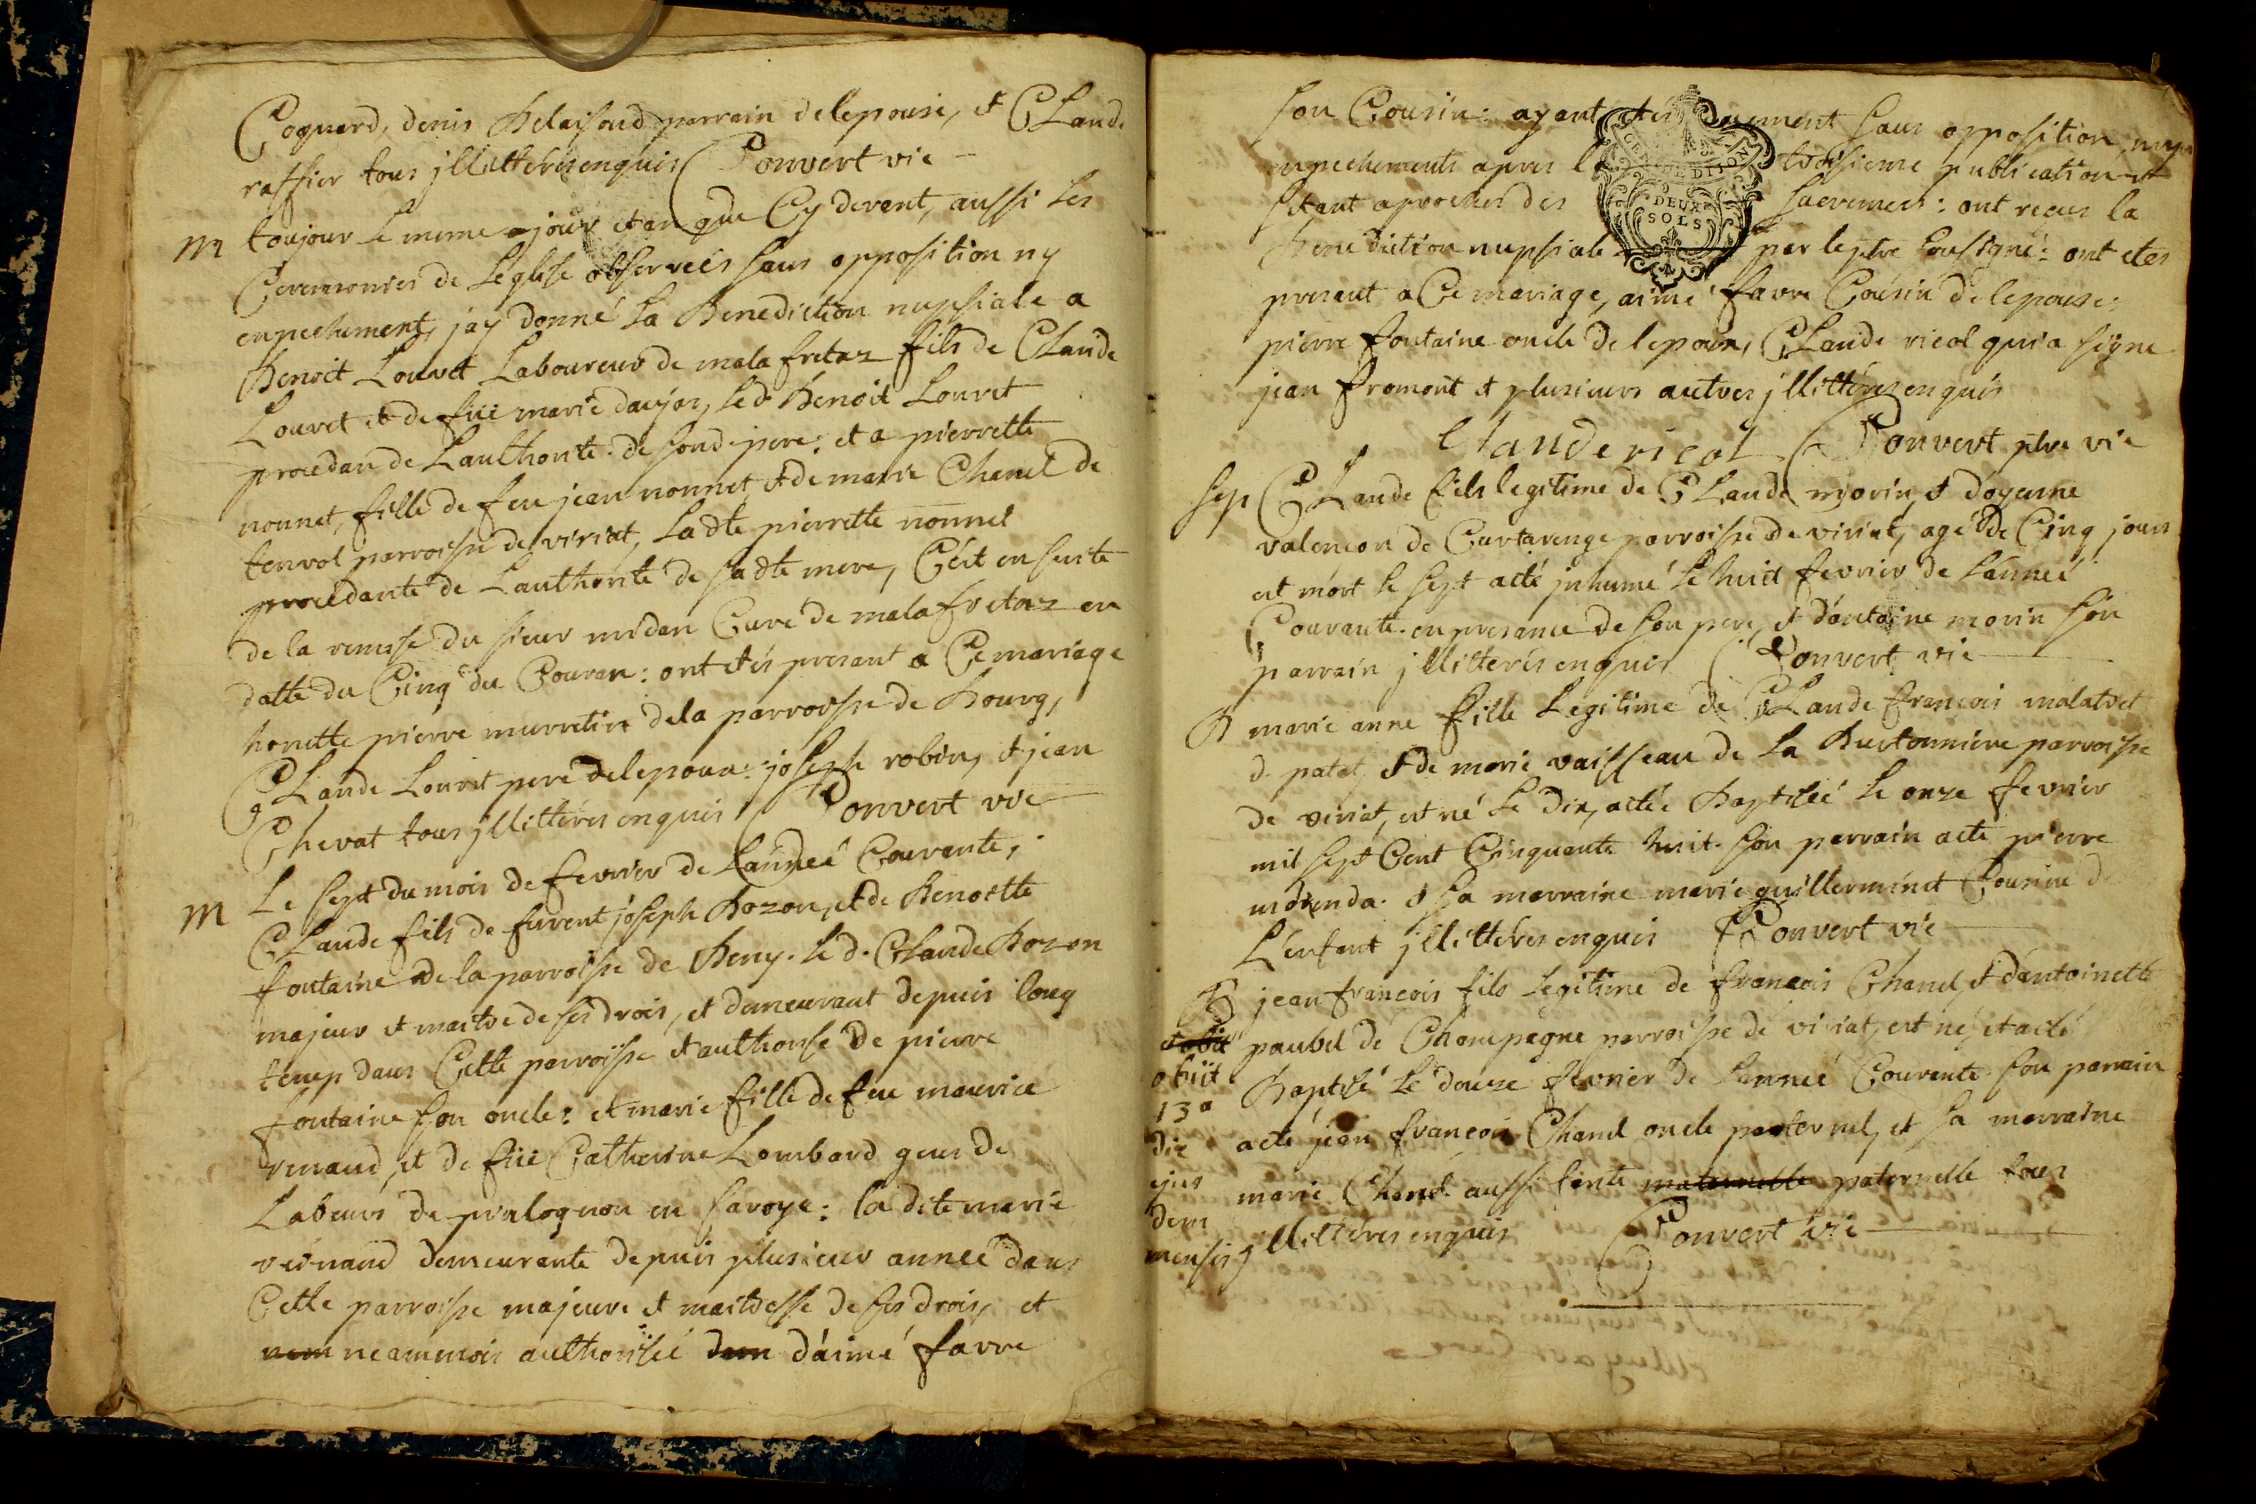 Coquard, denis Belaisoud parrain delepouse, et CLaude
raffier tous jllitterés enquis Convert vic
M toujour le meme jour et an que Cy devent, aussi les
Ceremonies de Leglise observeés sans opposition ny
enpechement, jay donné la Benediction nupsiale a
Benoit Louvet Laboureur de malafretaz fils de Claude
Louvet et de füe marie daujor, led. Benoit Louvet
procedan de Lauthorité de sond. pere: et a pierrette
nonnet, fille de feu jean nonnet et de marie Chanel de
tenvol parroisse de viriat, Ladte pierrette nonnet
procedante de Lauthorité de sadte mere, Cést en suite
de la remise du sieur midan Curé de malafretaz en
datte du Cinq du Couran: ont etés presant a Ce mariage
honette pierre murretin dela parroisse de Bourg,
CLaude Louvet pere delepoux: joseph robin, et jean
Chevat tous jllitterés enquis Convert vic
M Le sept du mois de fevrier de Lanneé Courante,
CLaude fils de furent joseph Bozon, et de Benoitte
fontaine de la parroisse de Beny. le d. CLaude Bozon
majeur et maitre de ses drois, et demeurant depuis long
temp dans Cette parroisse et authorisé de pierre
fontaine son oncle: et marie fille de feu maurice
renaud, et de füe Catherine Lombard gens de
Labeurs de pralognon en savoye: la dite marie
reinaud demeurante depuis plusieur anneé dans
Cette parroisse majeure et maitresse de ses drois, et
nem neammoin authoriseé dem d'aimé favre
son Cousin: ayant etés duement sans opposition, ny
enpechements apres l troisieme publication et
setant aprochés des sacremens: ont receus la
Benediction nupsiale par leptre sousigné: ont etés
presant a Ce mariage, aimé favre Cousin de lepouse:
pierre fontaine oncle de lepoux, CLaude ricol qui a signe
jean fromont et plusieurs autres jllitterés enquis
Claude ricol Convert ptre vic
GEN. DE DIJON
DEUX
SOLS
sep CLaude fils legitime de CLaude morin, et doyenne
valencon de Curtarenge parroisse de viriat, agé de Cinq jours
est mort le sept aeté jnhumé le huit fevrier de Lánneé
Courante en presance de son pere, et dántoine morin son
parrain jllitterés enquis Convert vic
B marie anne fille Legitime de CLaude francois malatret
d. patet, et de marie vaisseau de la Burtonniere parroisse
de viriat, est né le dix, aetée Baptiseé le onze fevrier
mil sept Cent Cinquante huit. son parrain aete pierre
morenda. et sa marraine marie guillerminet Cousine de
Lénfant jllitterés enquis Convert vic
B jean francois fils Legitime de francois Chanel, et dántoinette
paubel de Champagne parroisse de viriat, est né, et aeté
Baptisé le douze fevrier de Lanneé Courante son parrain
aeté jean francois Chanel oncle paternel, et sa marraine
marie Chanel aussi tante maternelle paternelle tous
jllitterés enquis Convert vic
obiit
obiit
13a
die
ejus
dem
mensis